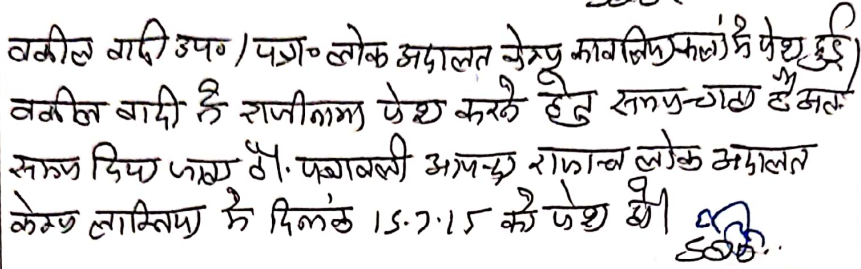 वकील वादी उप० / पत्रा० लोक अदालत केम्प कावलिया कलां में पेश हुई।
वकील वादी ने राजीनामा पेश करने हेतु समय चाहा है अतः
समय दिया जाता है. पत्रावली आगामी लोक अदालत
केम्प लाम्बिया में दिनांक 15.7.15 को पेश हो।